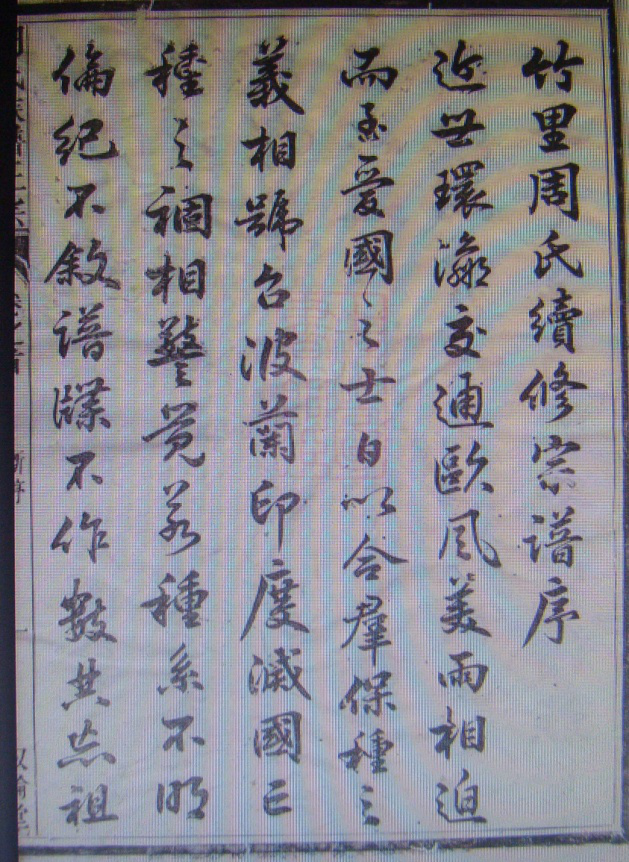 竹里周氏續修宗譜序
近世環瀛交通歐風美雨相迫
而至愛國之士日以合羣保種之
義相號召波蘭印度滅國亡
種之禍相警覺若種系不明
倫紀不敘譜牒不作數其忘祖